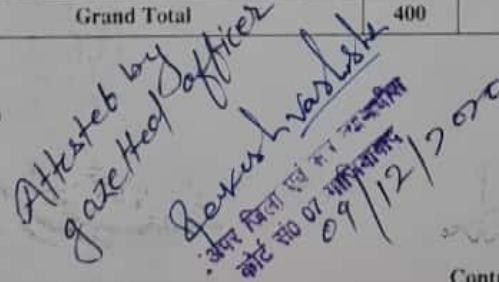 Grand Total 400
Attested by
gazetted officer
vashisht
अपर जिला एवं सत्र न्यायाधीश
कोर्ट सं0 07 गाजियाबाद
09/12/2020
Contr